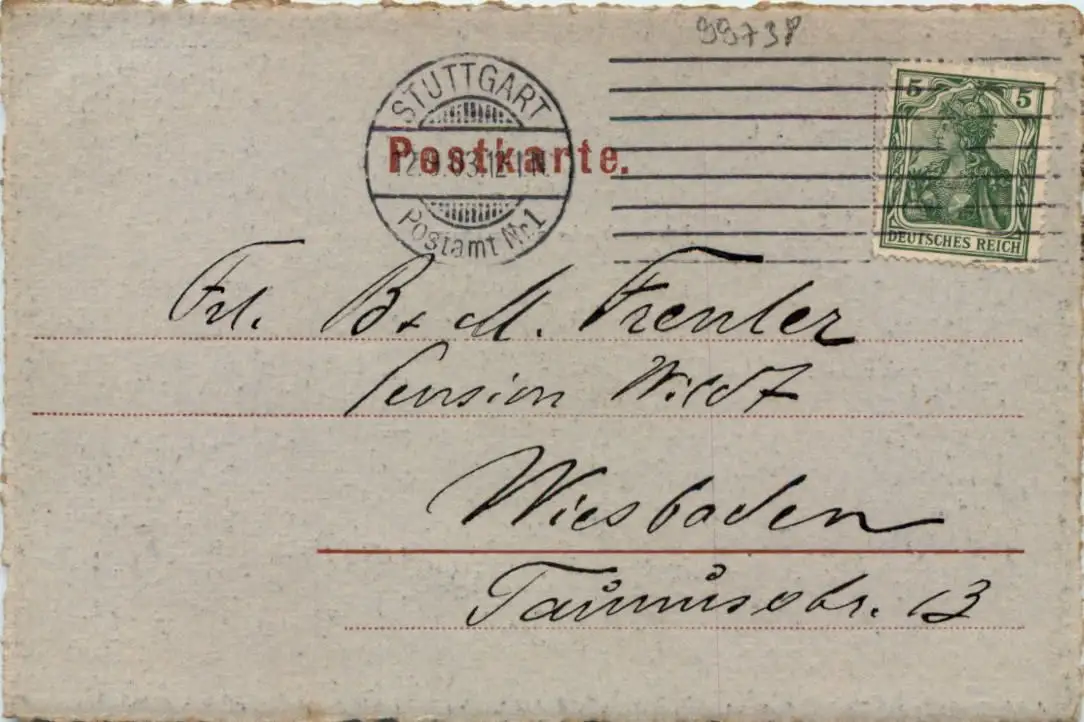 99738
STUTTGART
12.9.03.12-1N.
Postamt Nr. 1
Postkarte.
5 5
DEUTSCHES REICH
Frl. B + M. Frenler
Pension Wildt
Wiesbaden
Taunusstr. 13